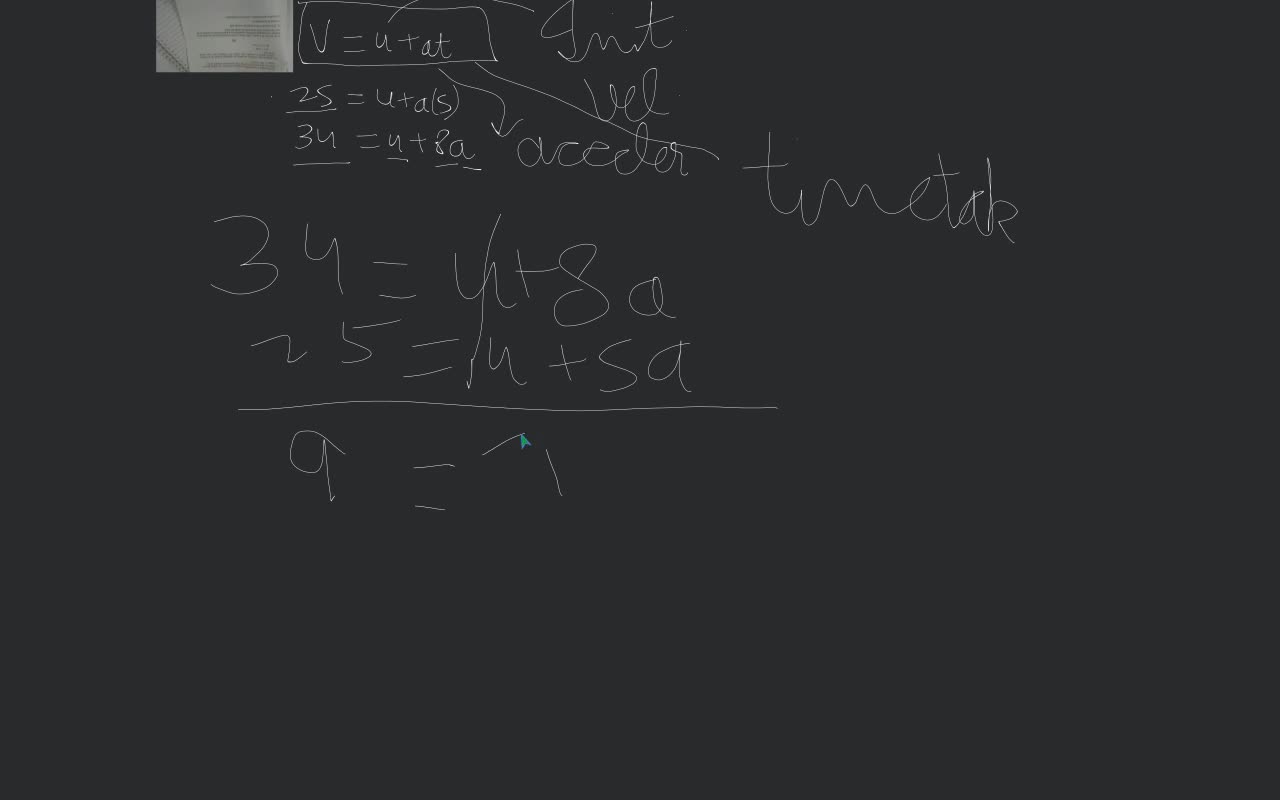 V = u + at
Init
vel
25 = u + a(5)
34 = u + 8a
acceler
time tak
34 = u + 8a
25 = u + 5a
9 =